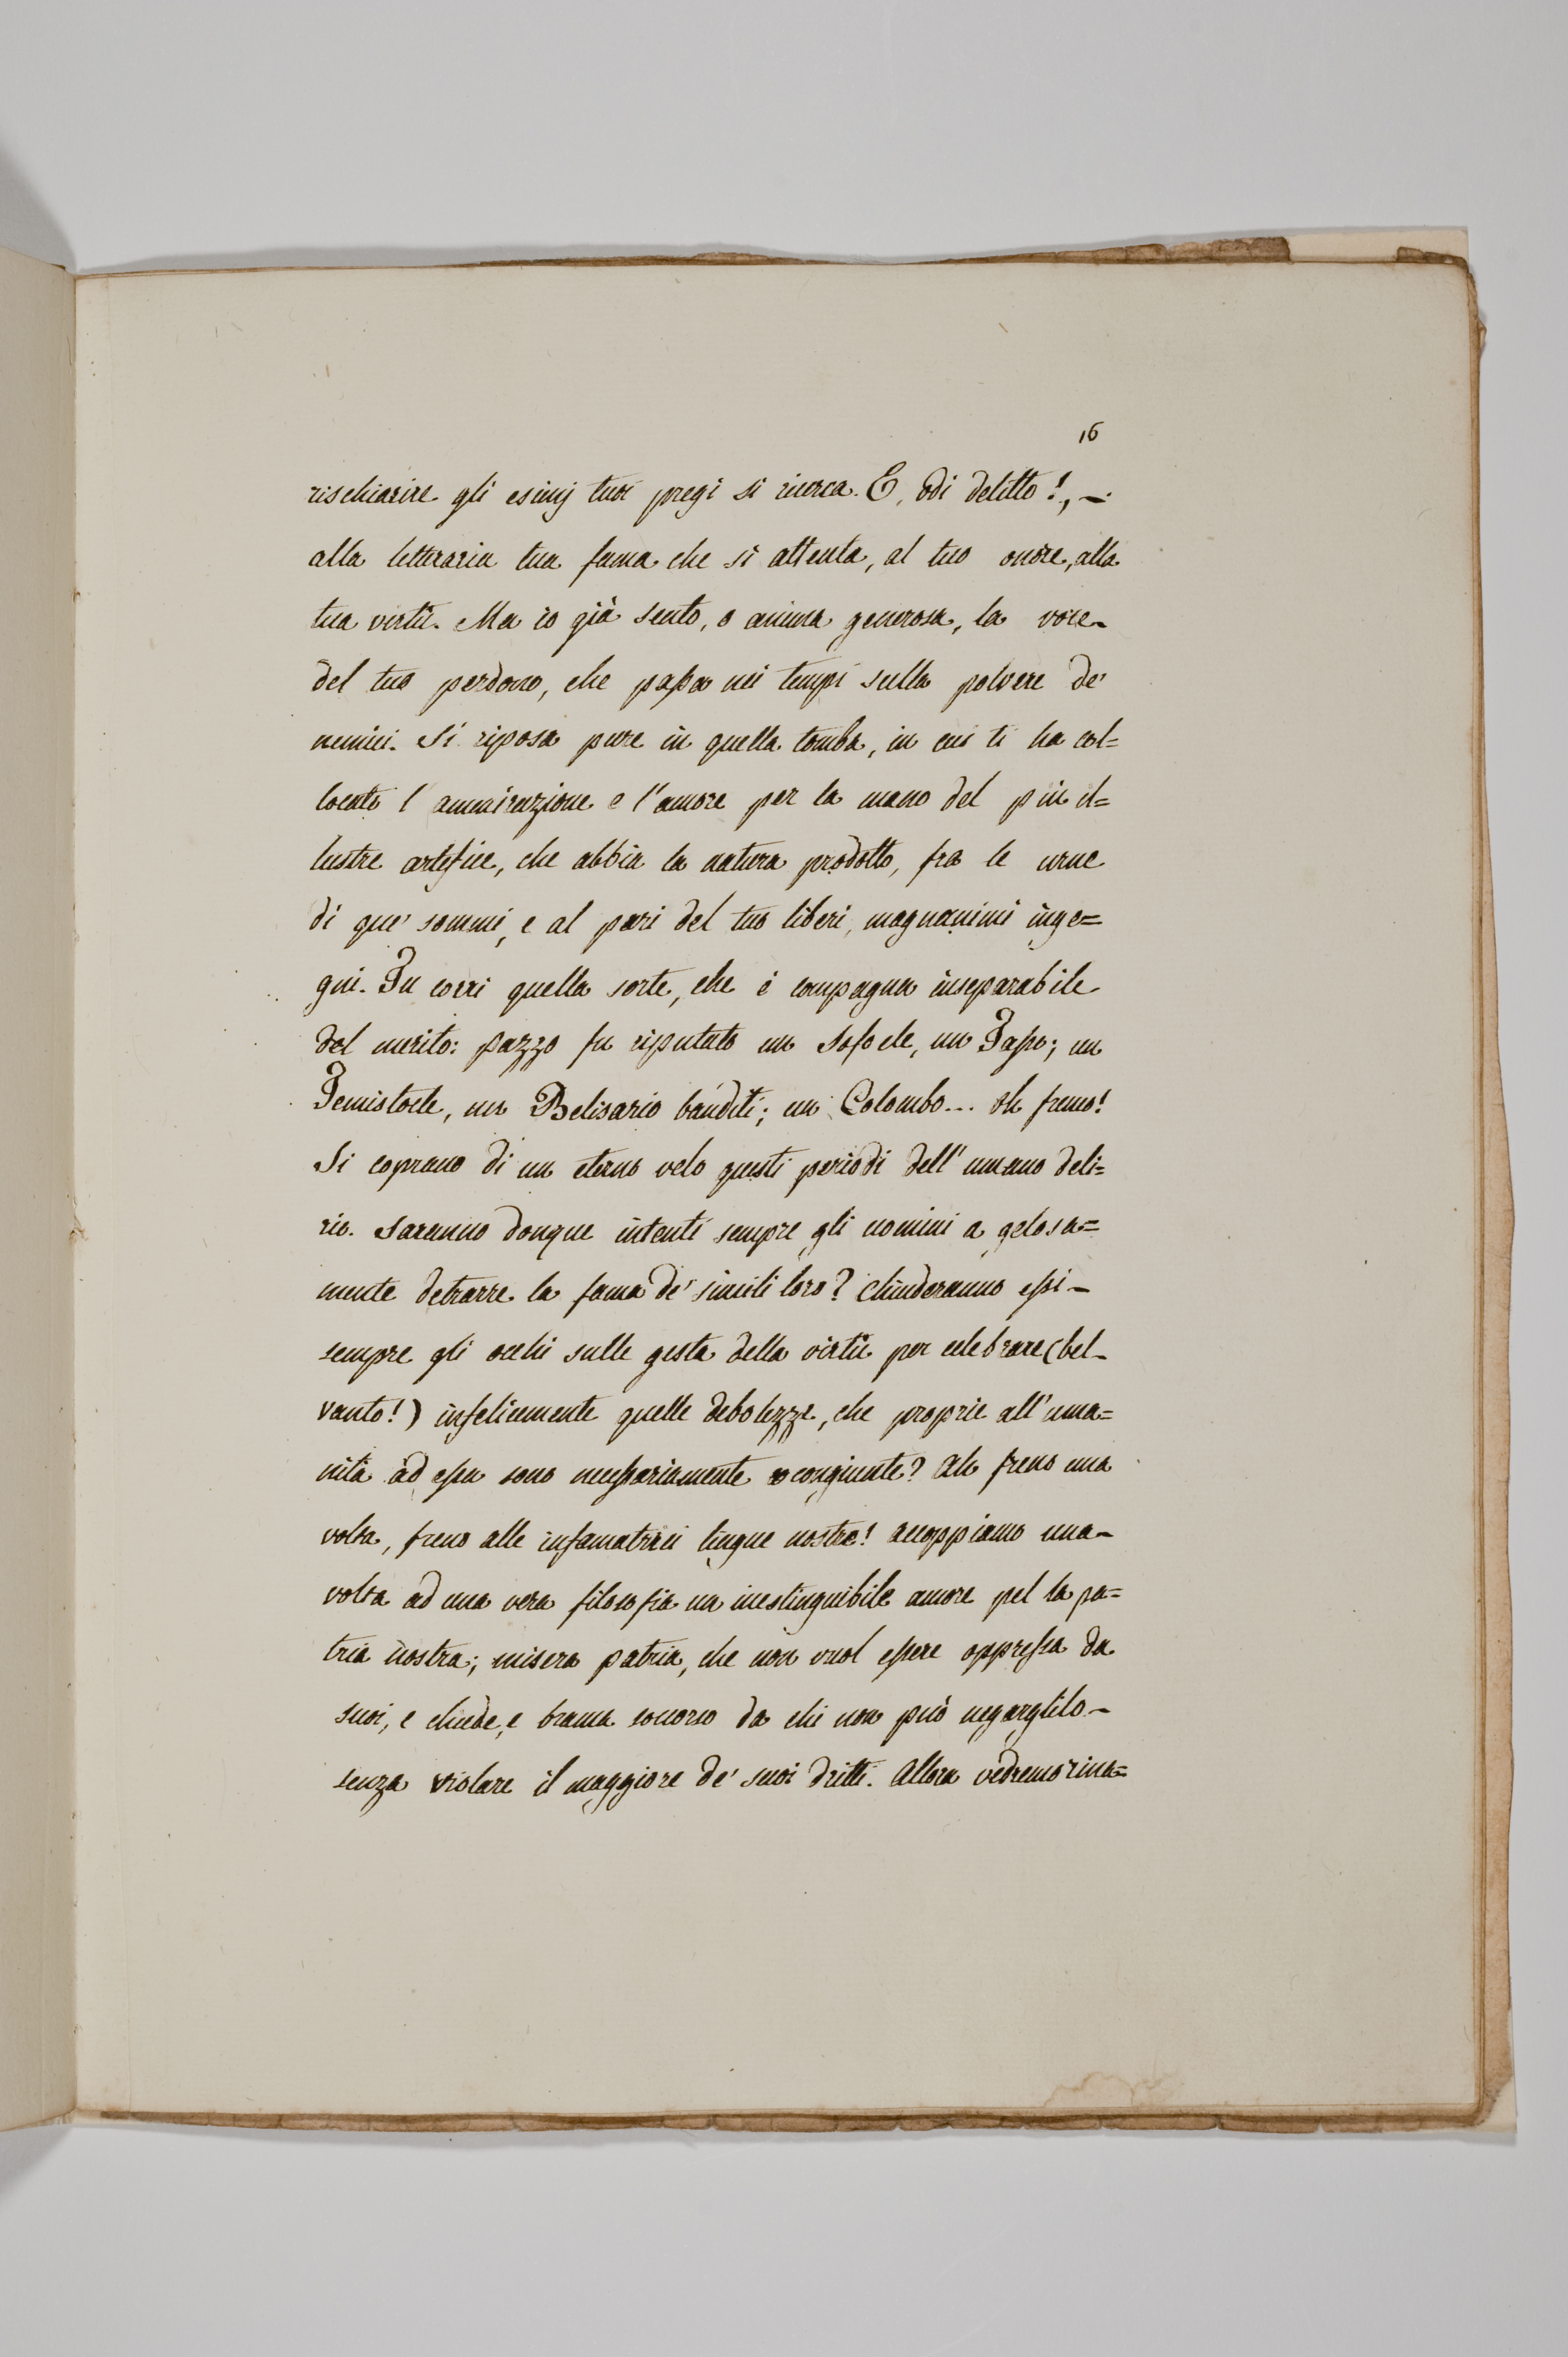 16
rischiarire gli esimj tuoi pregi si ricerca. E, odi delitto!, —
alla letteraria tua fama che si attenta, al tuo onore, alla
tua virtù. Ma io già sento, o anima generosa, la voce
del tuo perdono, che passa nei tempi sulla polvere de'
nemici. Si riposa pure in quella tomba, in cui ti ha col=
locato l'ammirazione e l'amore per la mano del più il=
lustre artefice, che abbia la natura prodotto, fra le urne
di que' sommi, e al pari del tuo liberi, magnanimi inge=
gni. Tu corri quella sorte, che è compagna inseparabile
del merito: pazzo fu riputato un Sofocle, un Tasso; un
Temistocle, un Belisario banditi; un Colombo... oh fremo!
Si coprano di un eterno velo questi periodi dell'umano deli=
rio. Saranno donque intenti sempre gli uomini a gelosa=
mente detrarre la fama de' simili loro? Chiuderanno essi —
sempre gli occhi sulle gesta della virtù per celebrare (bel —
vanto!) infelicemente quelle debolezze, che proprie all'uma=
nità ad essa sono necessariamente congiunte? Ah freno una
volta, freno alle infamatrici lingue nostre! accoppiamo una —
volta ad una vera filosofia un inestinguibile amore pel la pa=
tria nostra; misera patria, che non vuol essere oppressa da
suoi, e chiede, e brama soccorso da chi non può negarglilo —
senza violare il maggiore de' suoi dritti. Allora vedremo rina=